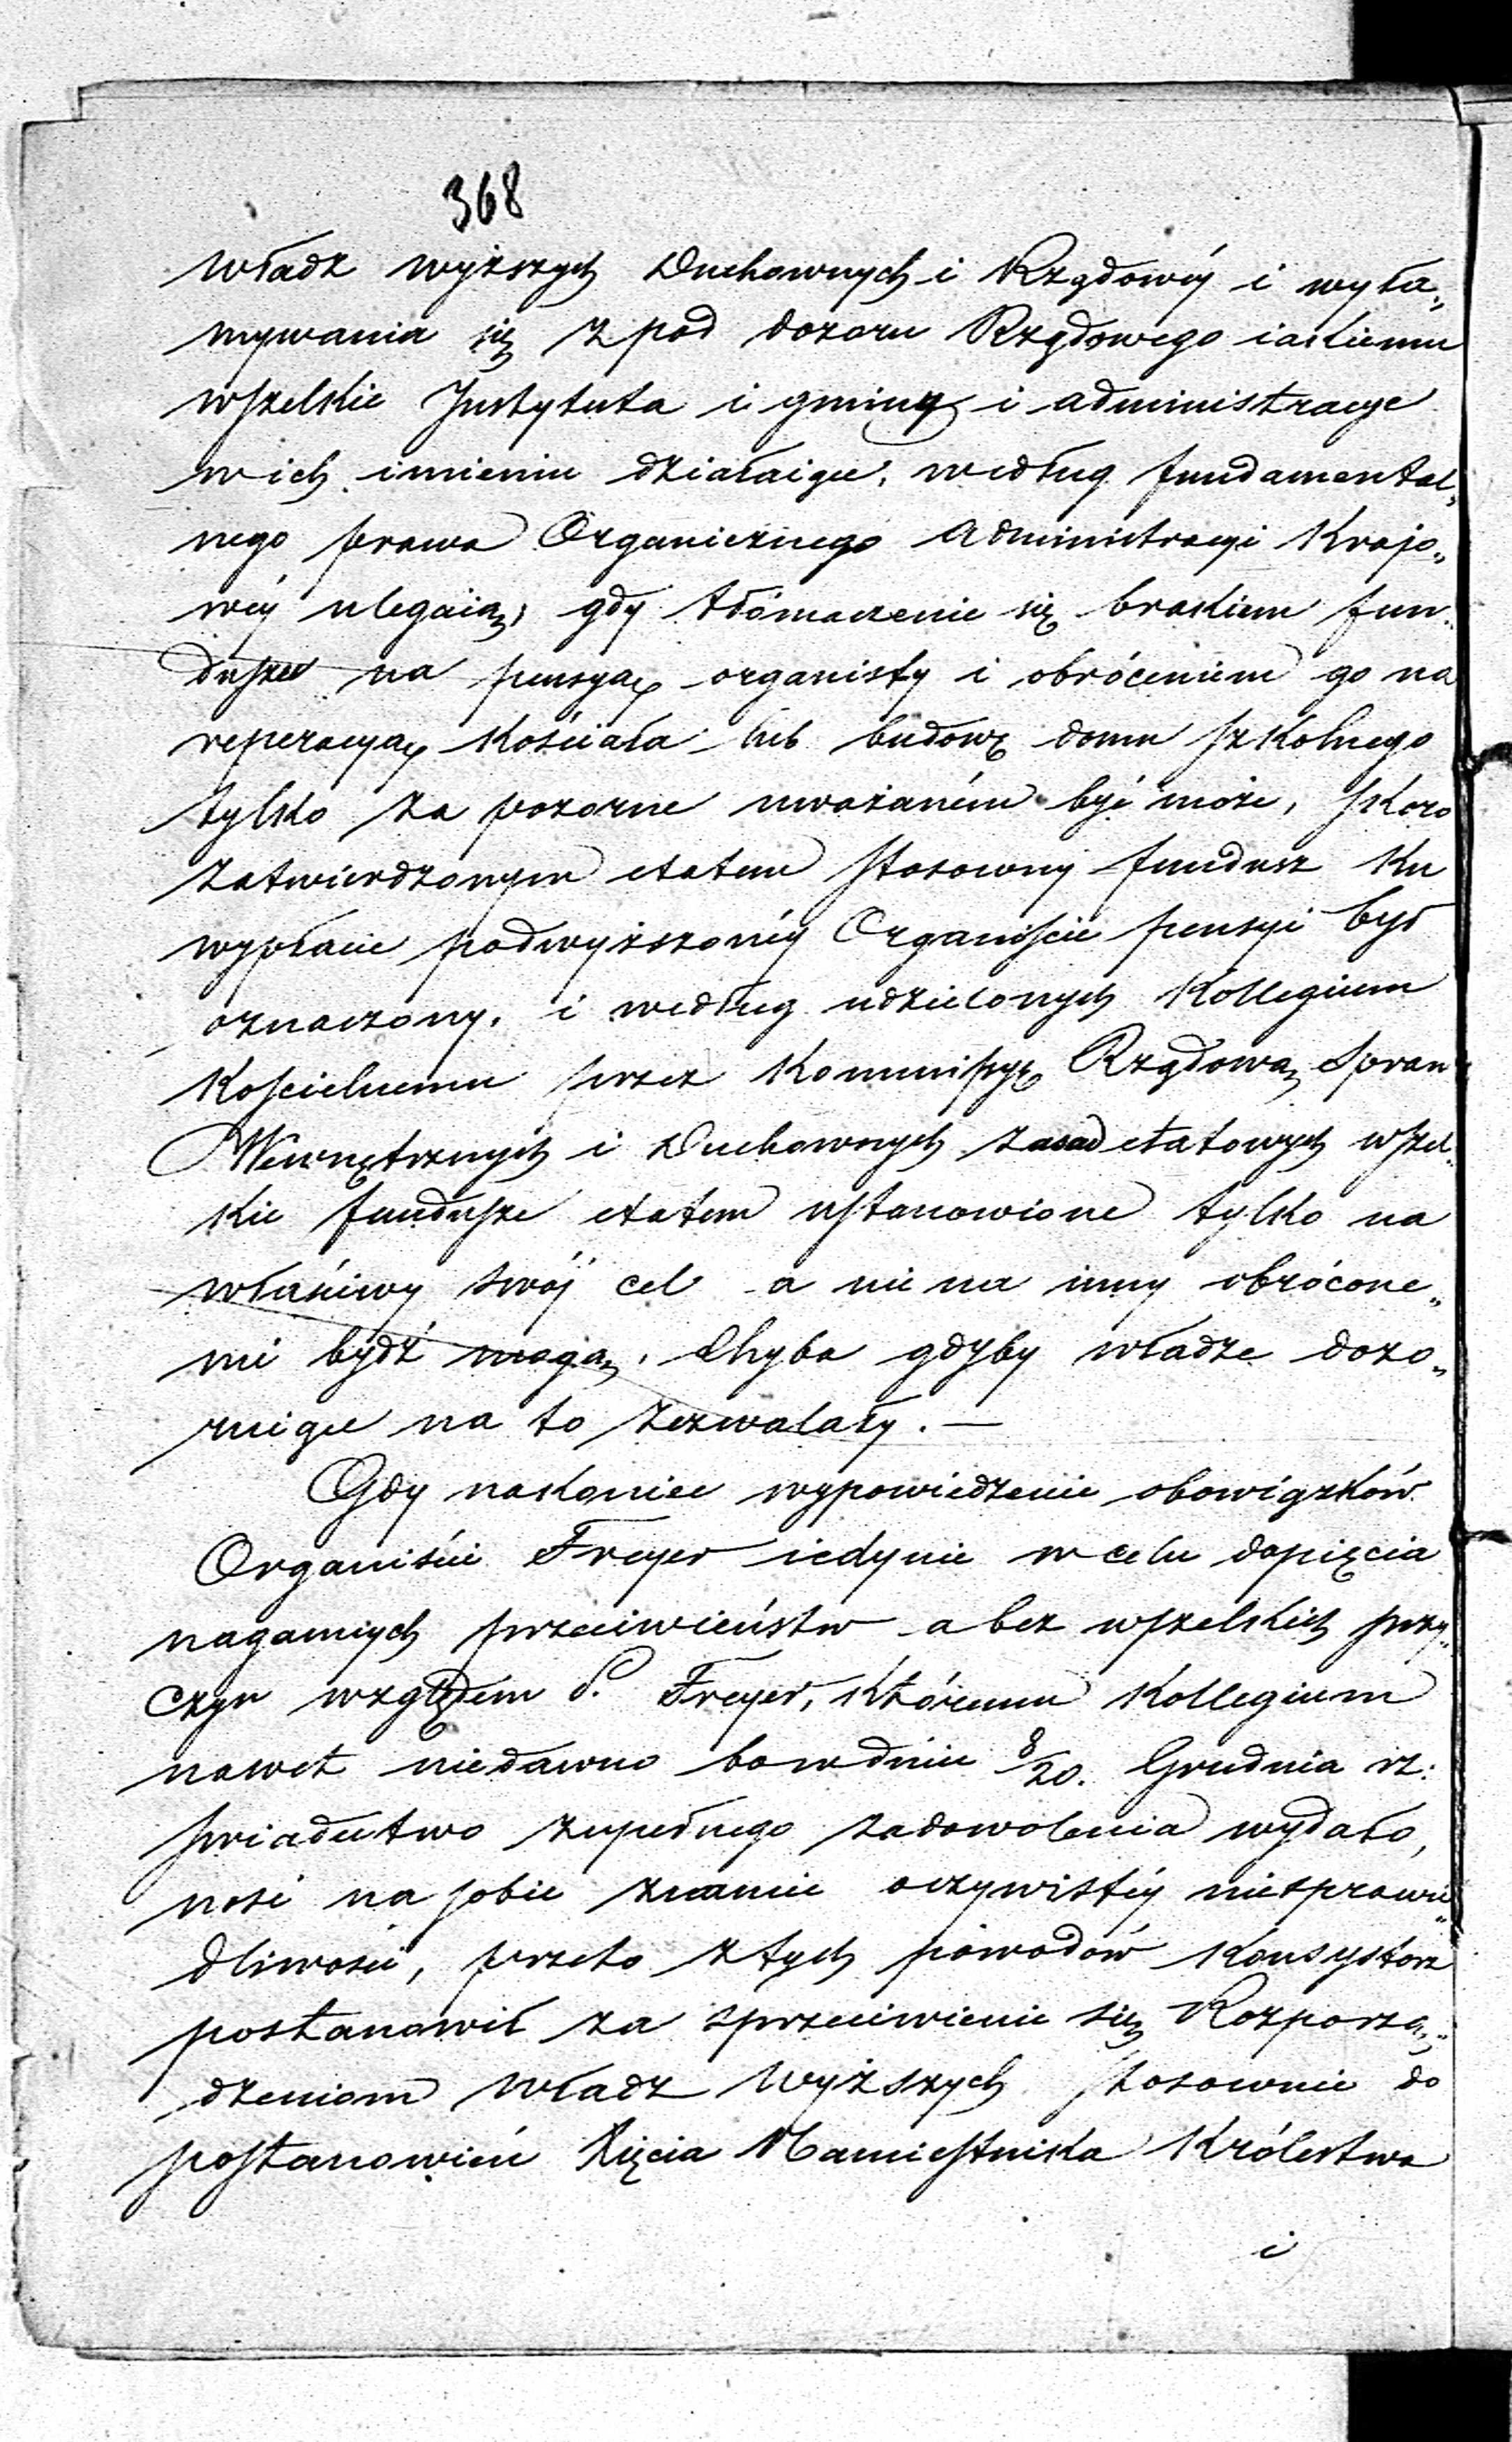 368
władz wyższych Duchownych i Rządowéy i wyła„
mywania się z pod dozoru Rządowego iakiemu
wszelkie Instytuta i gminy i administracye
w ich imieniu działaiące, według fundamental„
nego prawa Organicznego Administracyi Krajo„
wéy ulegaią, gdy tłómaczenie się brakiem fun„
duszu na pensyą organisty i obróceniem go na
reperacyą Kościoła lub budowę domu szkolnego
tylko za pozorne uważaném być może, skoro
zatwierdzonym etatem stosowny fundusz ku
wypłacie podwyższonéy Organiście pensyi był
oznaczony, i według udzielonych Kollegium
Kościelnemu przez Kommissyę Rządową Spraw
Wewnętrznych i Duchownych zasad etatowych wszel„
kie fundusze etatem ustanowione tylko na
właściwy swój cel a nie na inny obrócone„
mi bydź mogą, chyba gdyby władze dozo„
ruiące na to zezwalały. —
Gdy nakoniec wypowiedzenie obowiązków
Organiście Freyer iedynie w celu dopięcia
nagannych przeciwieństw a bez wszelkich przy„
czyn względem P. Freyer, któremu Kollegium
nawet niedawno bo w dniu 8/20. Grudnia rz:
świadectwo zupełnego zadowolenia wydało,
nosi na sobie znamie oczywistéy niesprawie„
dliwości, przeto z tych powodów Konsystorz
postanowił za sprzeciwienie się Rozporzą„
dzeniom władz wyższych stosownie do
postanowień Xięcia Namiestnika Królestwa
i